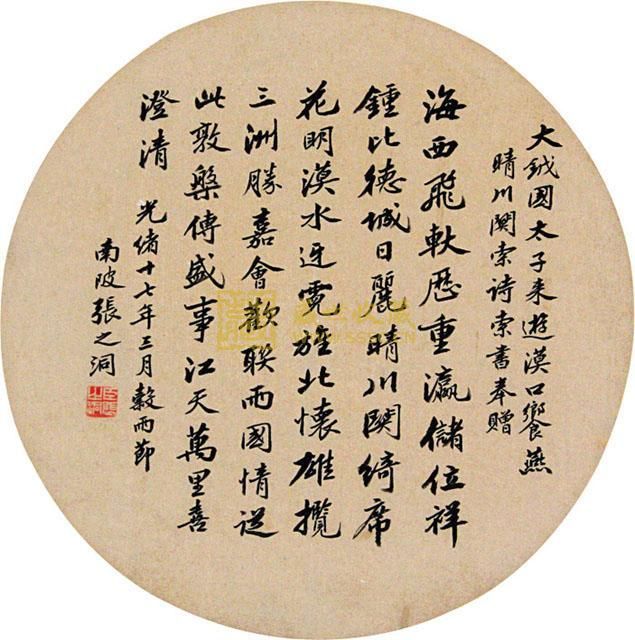 大鉞國太子来遊漢口饗燕
晴川閣索诗索書奉贈
海西飛軼歷重瀛儲位祥
鍾比德城日麗晴川開綺席
花明漢水迓霓旌北懷雄攬
三洲勝嘉會歡聯兩國情從
此敦槃傳盛事江天萬里喜
澄清
光緒十七年三月穀雨節
南陂張之洞